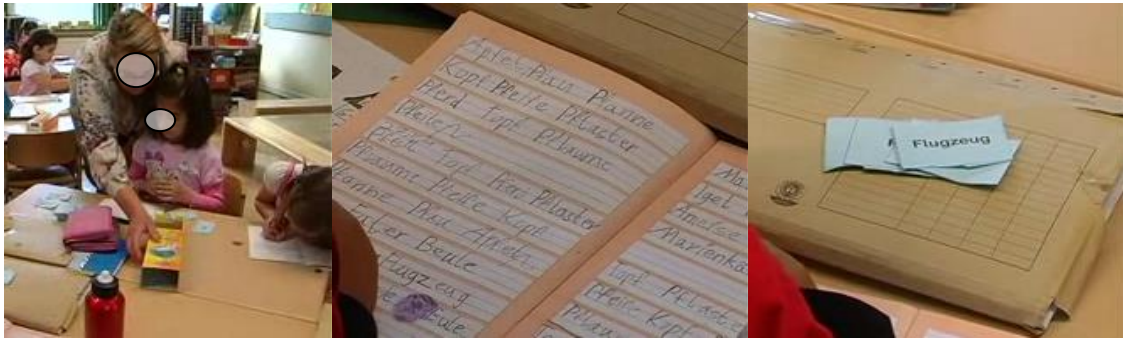 Apfel Pfau Pfanne
Kopf Pfeife Pflaster
Pferd Topf Pflaume
Pfeife
Topf Pferd Pflaster
Pflaume Pfeife Kopf
Pfanne Pfau Apfel
Beule
Flugzeug
Eule
Igel
Ameise
Topf Pflaster
Pfeife Kopf
Flugzeug